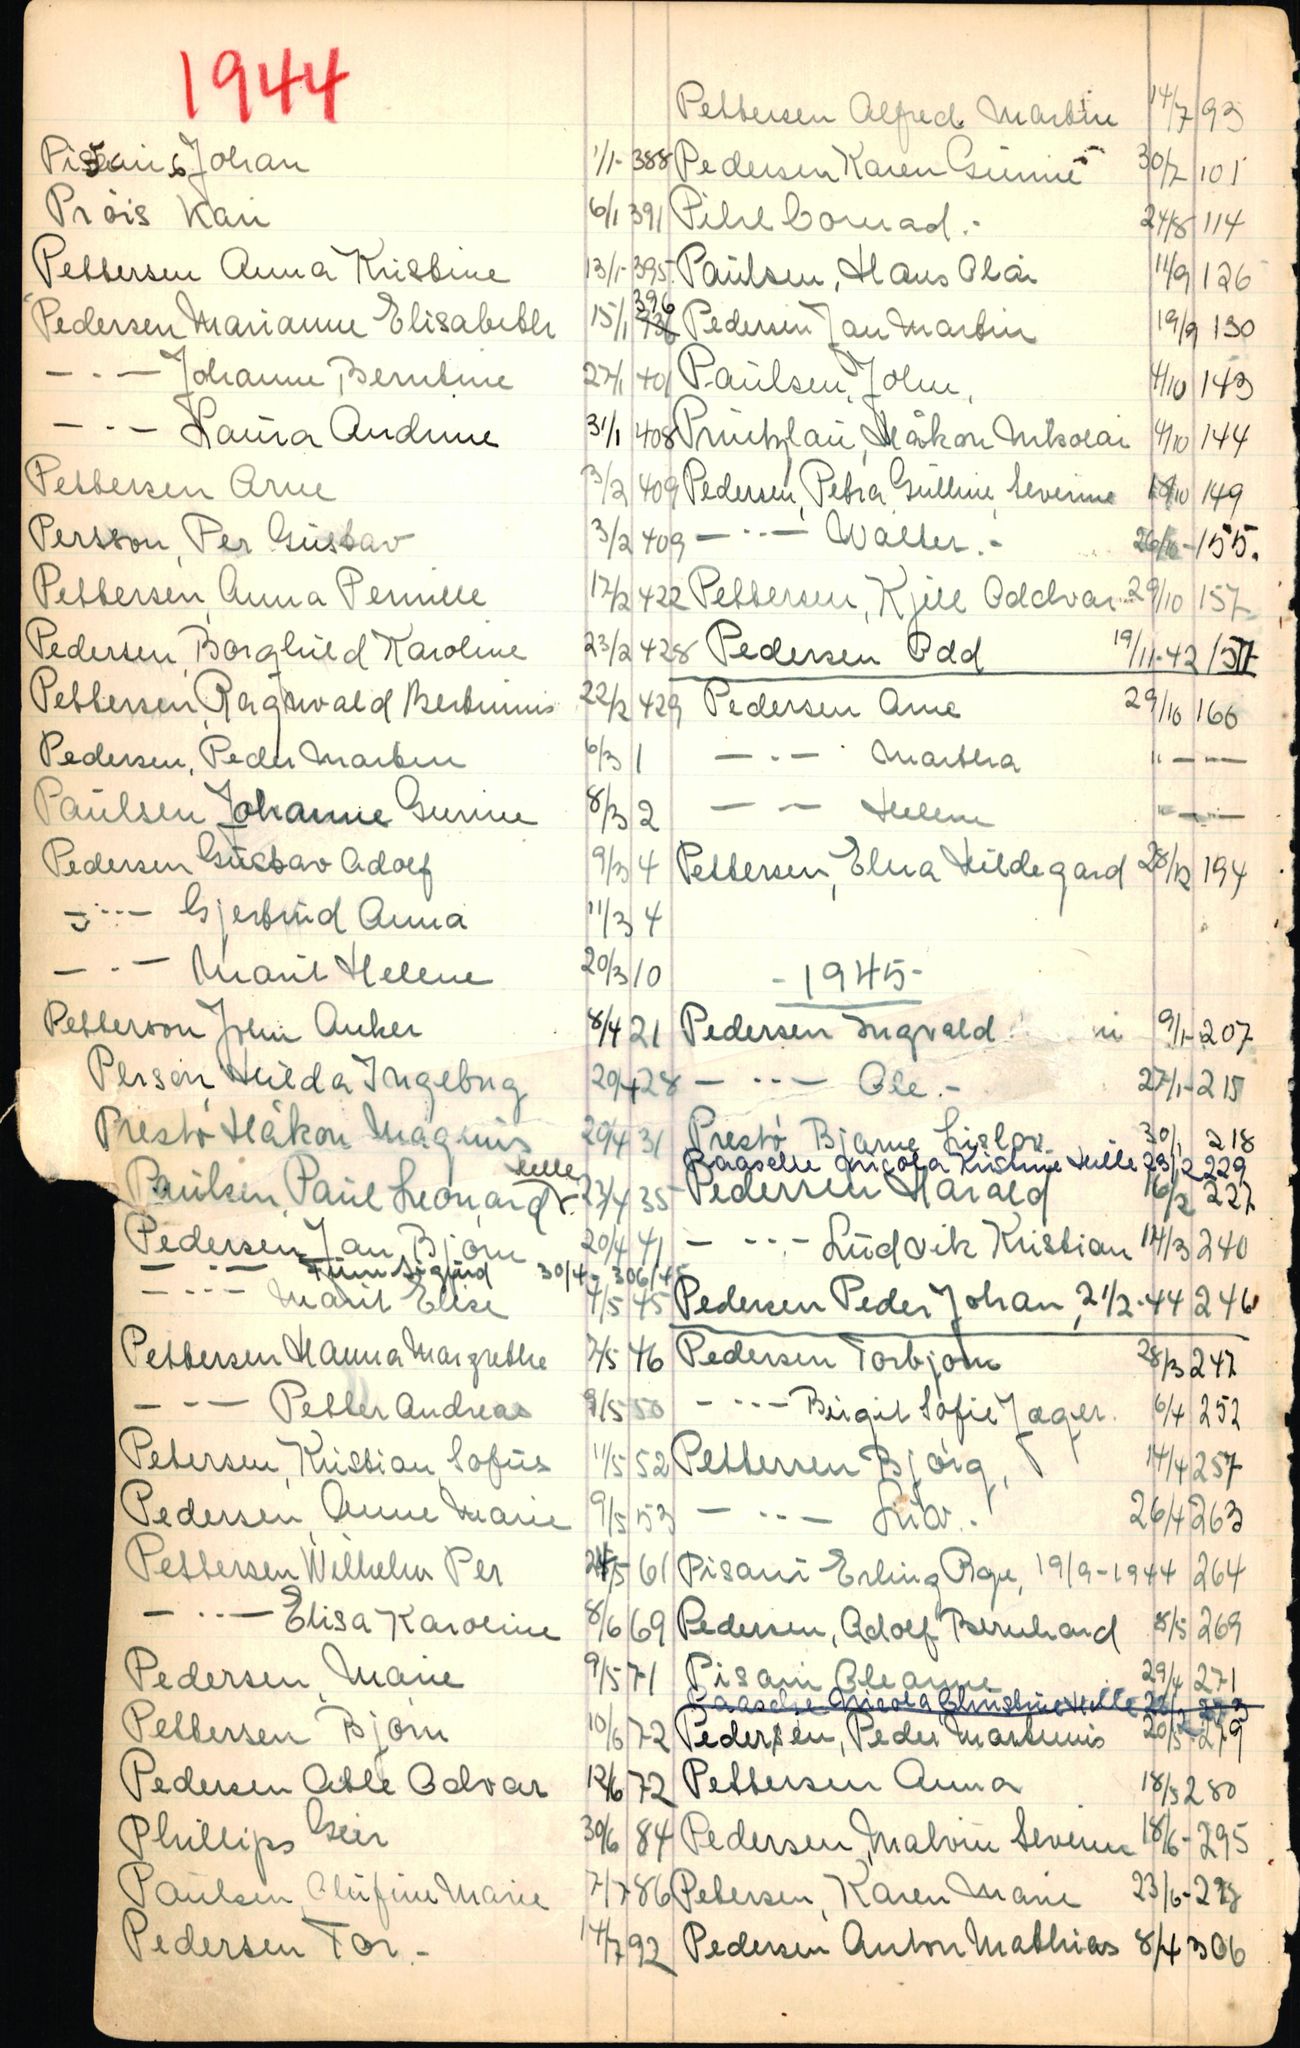 1944
Pisani, Johan 1/1- 388
Prøis Kari 6/1 391
Pettersen Anna Kristine 13/1- 395
Pedersen Marianne Elisabeth 15/1 396
— · — Johanne Berntine 27/1 401
— · — Laura Andrine 31/1 408
Pettersen Arne 3/2 409
Persson, Per Gustav 3/2 409
Pettersen, Anna Pernille 17/2 422
Pedersen, Borghild Karoline 23/2 428
Pettersen, Ragnvald Bertinius 22/2 429
Pedersen, Peder Martin 6/3 1
Paulsen Johanne Gurine 8/3 2
Pedersen Gustav Adolf 9/3 4
— · · — Gjertrud Anna 11/3 4
— · — Marit Helene 20/3 10
Petterson John Anker 8/4 21
Person, Hilda Ingeborg 20/4 28
Prestø Håkon Magnus 20/4 31
Paulsen, Paul Leonard 23/4 35
Pedersen, Jan Bjørn 20/4 41
— · · — Finn Sigurd 30/4 - 306/45
— · · — Marit Elise 4/5 45
Pettersen Hanna Margrethe 7/5 46
— · — Petter Andreas 9/5 50
Petersen, Kristian Sofus 11/5 52
Pedersen, Anne Marie 9/5 53
Pettersen Wilhelm Per 24/5 61
— · · — Elisa Karoline 8/6 69
Pedersen, Marie 9/5 71
Pettersen Bjørn 10/6 72
Pedersen Atle Advar 12/6 72
Phillips Geir 30/6 84
Paulsen, Olufine Marie 7/7 86
Pedersen Tor - 14/7 92
Pettersen Alfred Martin 14/7 93
Pedersen Karen Gunnie 30/7 101
Pihl Conrad.- 24/8 114
Paulsen, Hans Olai 11/9 126
Pedersen Jan Martin 19/9 130
Paulsen, John, 4/10 143
Printzlau, Håkon Nikolai 4/10 144
Pedersen, Petra Gulline Severine 149
— · · — Walter.- 26/10 - 155.
Pettersen, Kjell Oddvar 29/10 157
Pedersen Odd 19/11-42 157
Pedersen Arne 29/10 166
— · — Martha " — · —
— · — Helene " — · —
Pettersen, Elna Hildegard 28/12 194
- 1945 -
Pedersen Ingvald 9/1- 207
— · · — Ole.- 27/1- 215
Prestø Bjarne Lislov 30/1 218
Paasche Nicola Kristine Hille 23/12 229
Pedersen Harald 16/2 227
— · · — Ludvik Kristian 14/3 240
Pedersen Peder Johan, 21/2-44 246
Pedersen Torbjørn 28/3 247
— · · — Birgit Sofie Jæger. 6/4 252
Pettersen Bjørg, 14/4 257
— · · — Liv.- 26/4 263
Pisani Erling Roger, 19/9-1944 264
Pedersen, Adolf Bernhard 8/5 269
Pisani Oleanne 29/4 271
Paasche Nicola Christine Hille
Pedersen, Peder Martinius 20/5- 279
Pettersen Anna 18/5 280
Pedersen, Malvin Severin 18/6- 295
Petersen, Karen Marie 23/6- 298
Pedersen Anton Mathias 8/4 306